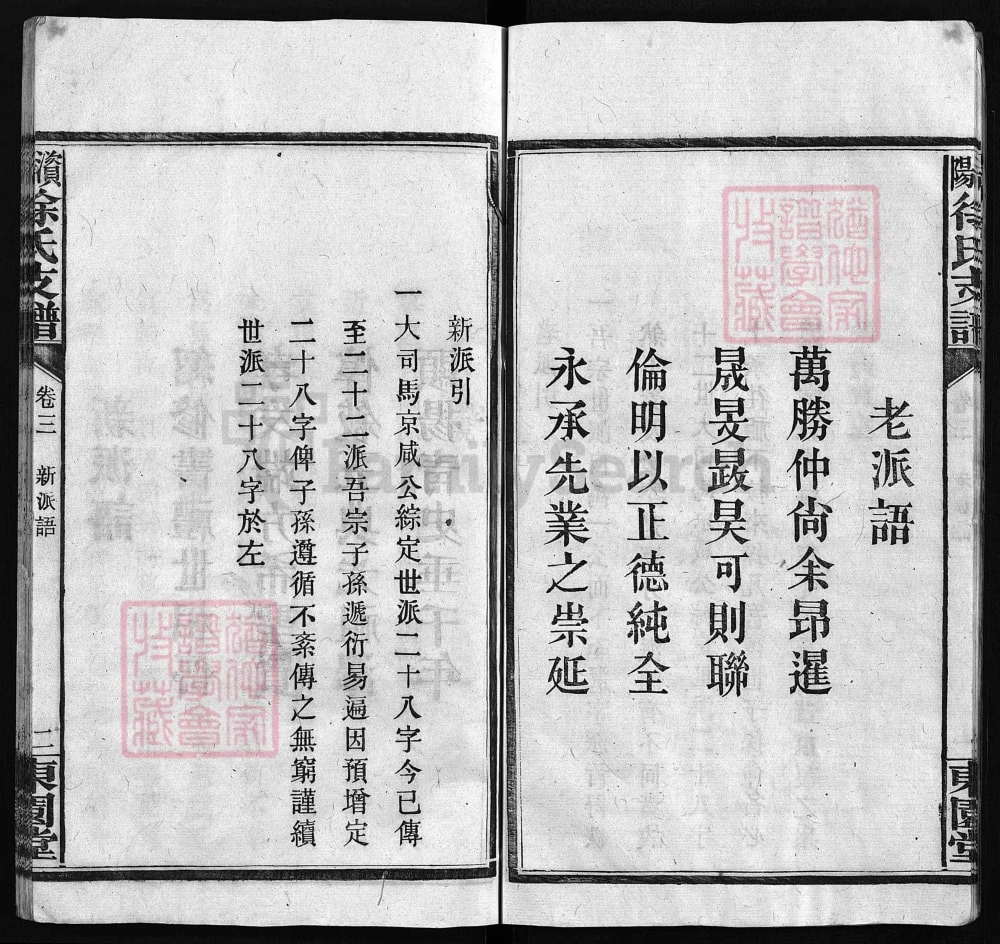 老派語
萬勝仲尙余昂暹
晟旻晸昊可則聯
倫明以正德純全
永承先業之崇延
新派引
一大司馬京咸公綜定世派二十八字今已傳
至二十二派吾宗子孫遞衍易遍因預增定
二十八字俾子孫遵循不紊傳之無窮謹續
世派二十八字於左
徐氏支譜
卷三 新派語
二
東園堂
陽徐氏支譜
東園堂
譜學會
藏
譜學會
藏
FamilySearch